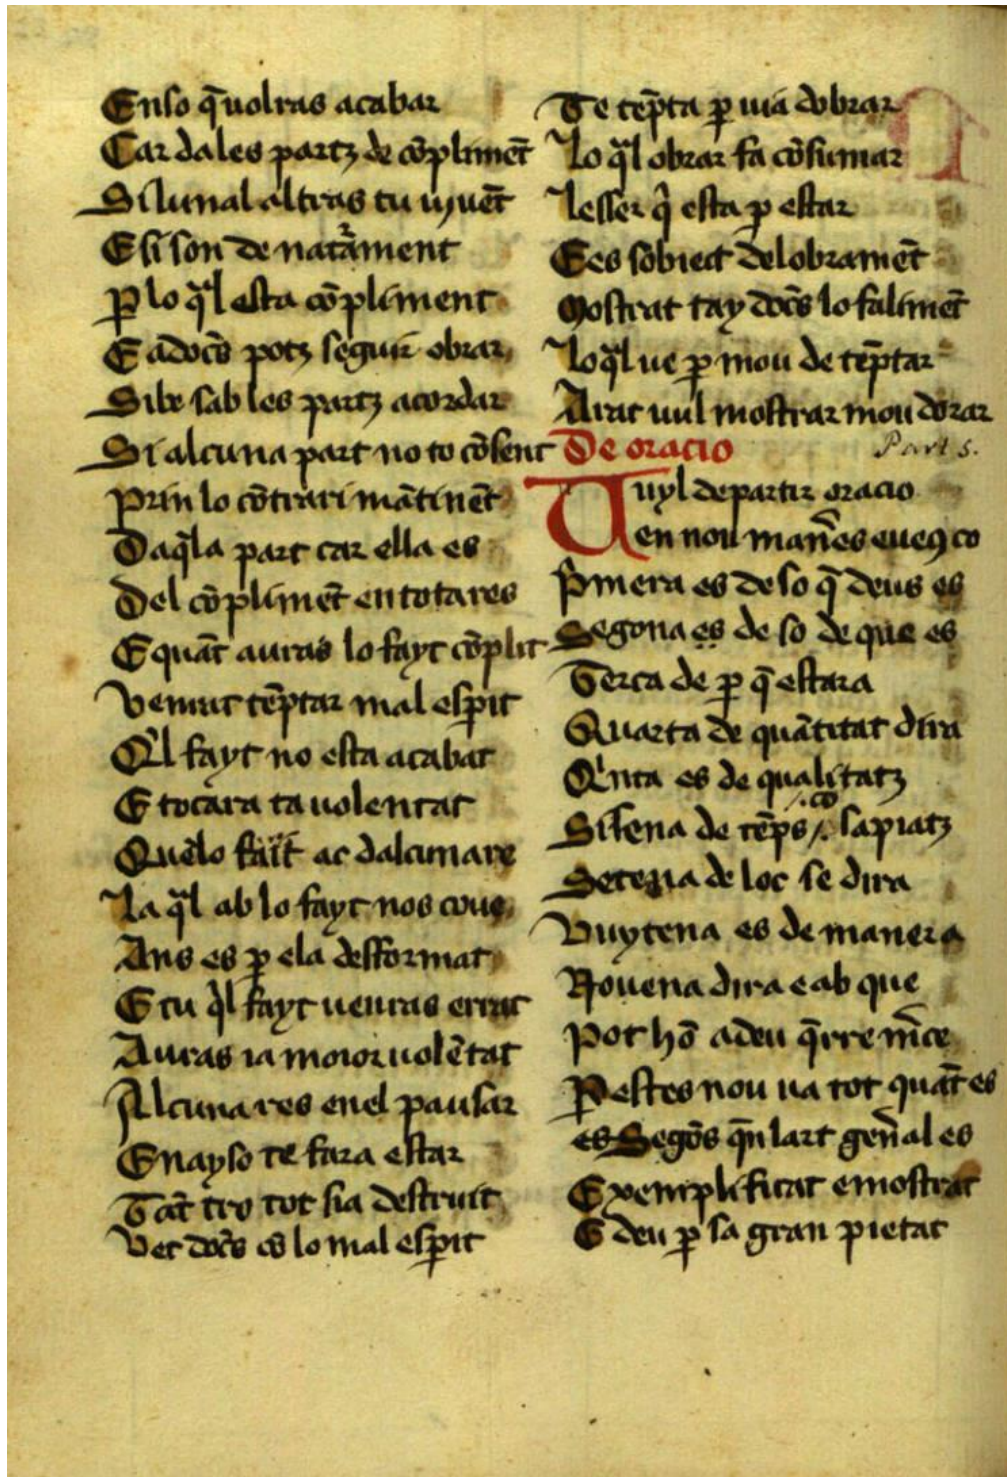 Enso q̄ uolras acabar
Car da les partz de cōplimēt
Si lun al altras tu ý uēt
E si son de natr̄ament
ꝑ lo q̄l esta cōpliment
E adōcs potz seguir obrar
Si be sab les partz acordar
Si alcuna part no to cōsent
Prin lo cōtrari mātinēt
Daq̄la part car ella es
Del cōplimēt en tota res
E quāt auras lo fayt cōplit
Venrat tēptar mal esꝑit
Q̄l fayt no esta acabat
E tocara ta uolentat
Quē lo fait ac dalcuna re
La q̄l ab lo fayt nos coue
Ans es ꝑ ela desformat
E tu q̄l fayt ueuras errat
Auras ia moior uolētat
Alcuna res en el pausar
En ayso te fara estar
Tāt tro tot sia destruit
Vet dōcs cō lo mal esꝑit
Te tēpta ꝑ uia dobrar
Lo q̄l obrar fa cōsumar
Lesser q̄ esta ꝑ estar
E es sobiect del obramēt
Mostrat tay dōcs lo falimēt
Lo q̄l ue ꝑ mou de tēptar
Arat uul mostrar mou dorar
De oracio
Part 5.
Vuyl departir oracio
en nou man̄es e ueꝯ co
Pᵢmera es de so q̄ deus es
Segona es de so de que es
Terca de ꝑ q̄ estara
Quarta de quātitat dira
Qⁱnta es de qualitatz
Sisena de tēps /. co sapiatz
Setena de loc se dira
Vuytena es de manera
Nouena dira e ab que
Pot hō a deu q̄rre m̄ce
ꝑ estes nou ua tot quāt es
es Segōs q̄n lart gen̄al es
Exemplificat e mostrat
E deu ꝑ sa gran pietat